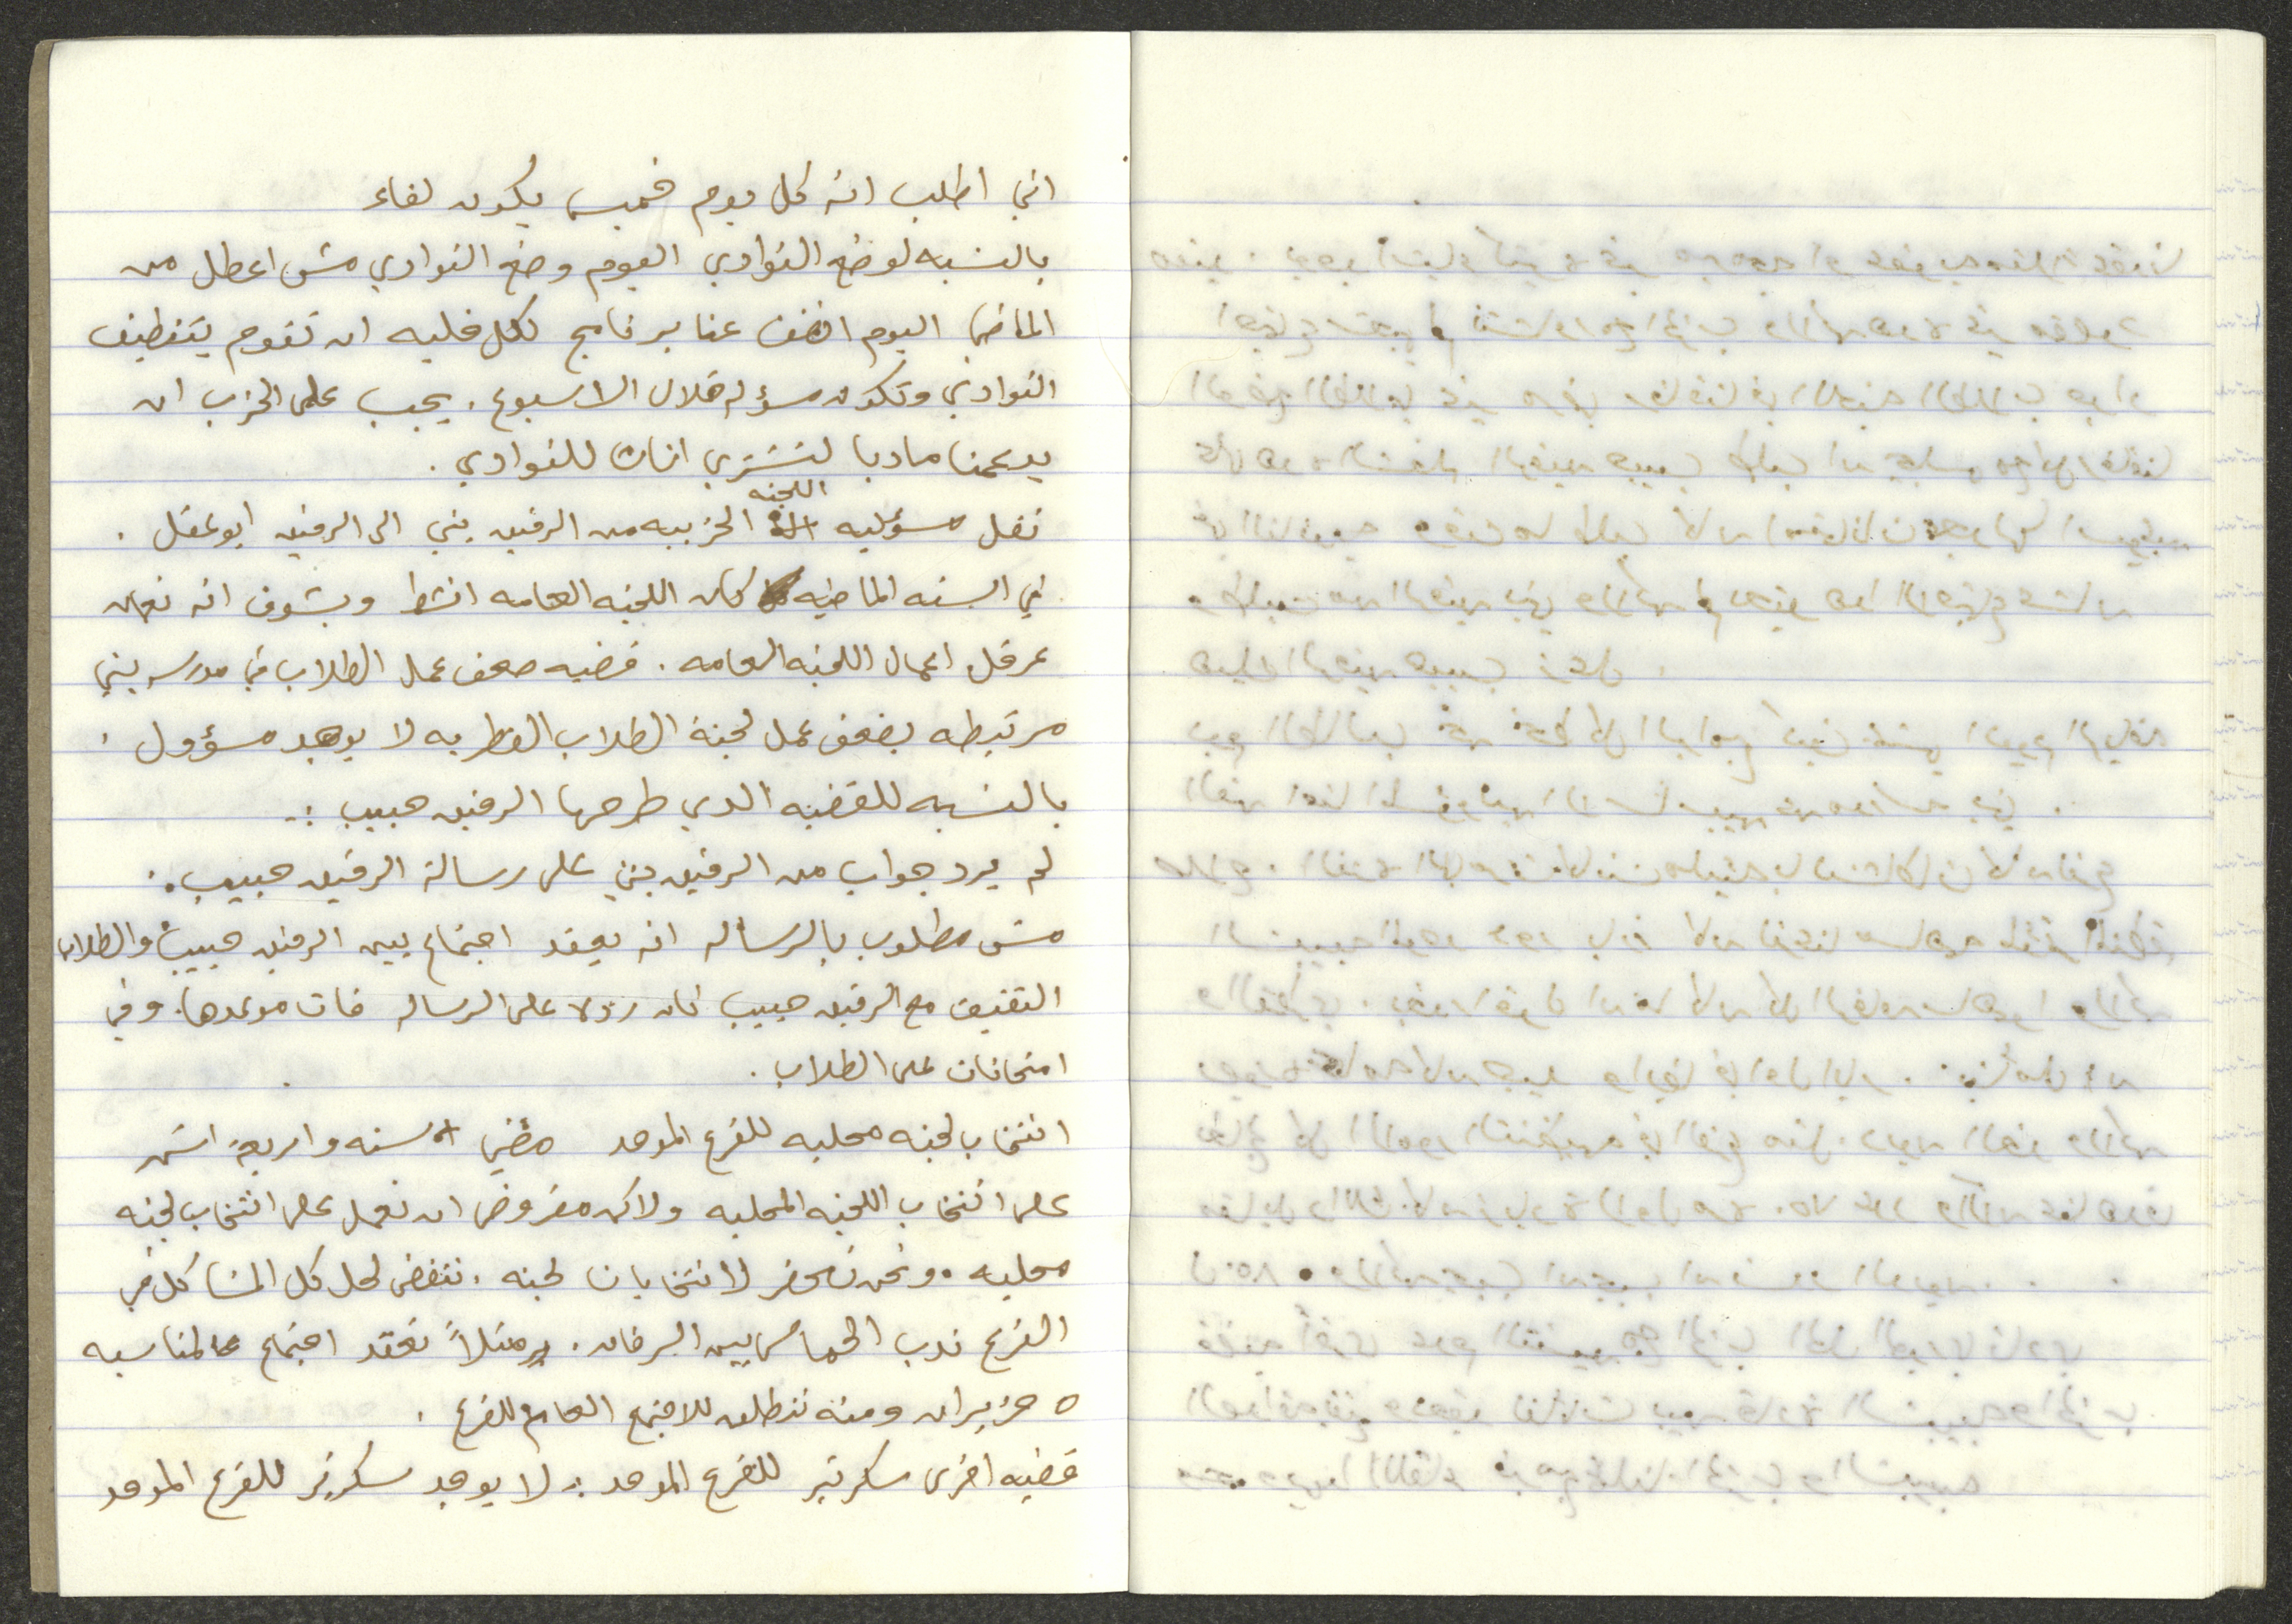 اني اطلب انه كل يوم خميس يكون لقاء
بالنسبه لوضع النوادي اليوم وضع النوادي مش اعطل من
الماضي اليوم عنا برنامج لكل خليه ان تقوم بتنظيف
النوادي وتكون مسؤله خلال الاسبوع. يجب على الحزب ان
يدعمنا ماديا لنشتري اثاث للنوادي.
نقل مسؤليه اللجنه الحزبيه من الرفيق بني الى الرفيق ابو عقل.
في السنه الماضيه كان اللجنه العامه انشط وبشوف انه نعمان
عرقل اعمال اللجنه العامه. قضيه ضعف عمل الطلاب في مدرسه يني
مرتبطه بضعف عمل لجنة الطلاب القطريه لا يوجد مسؤول.
بالنسبه للقضيه الذي طرحها الرفيق حبيب :-
لم يرد جواب من الرفيق بني على رسالة الرفيق حبيب.
مش مطلوب بالرساله انه يعقد اجتماع بين الرفيق حبيب والطلاب
التقنيف مع الرفيق حبيب كان على الرساله فات موعدها. وفي
امتحانات على الطلاب.
انتخاب لجنه محليه للفرع الموحد مضي سنه واربعة اشهر
على انتخاب اللجنه المحليه ولاكن مفروض ان نعمل على انتخاب لجنه
محليه. ونحن نحضر لانتخابات لجنه. ننفض لحل كل المشاكل في
الفرع ندب الحماس بين الرفاق. مثلاً نعقد اجتماع عالمناسبه
٥ حزيران ومنه ننطلق للاجتماع العام للفرع.
قضيه اخرى سكرتير للفرع الموحد :. لا يوجد سكرتير للفرع الموحد